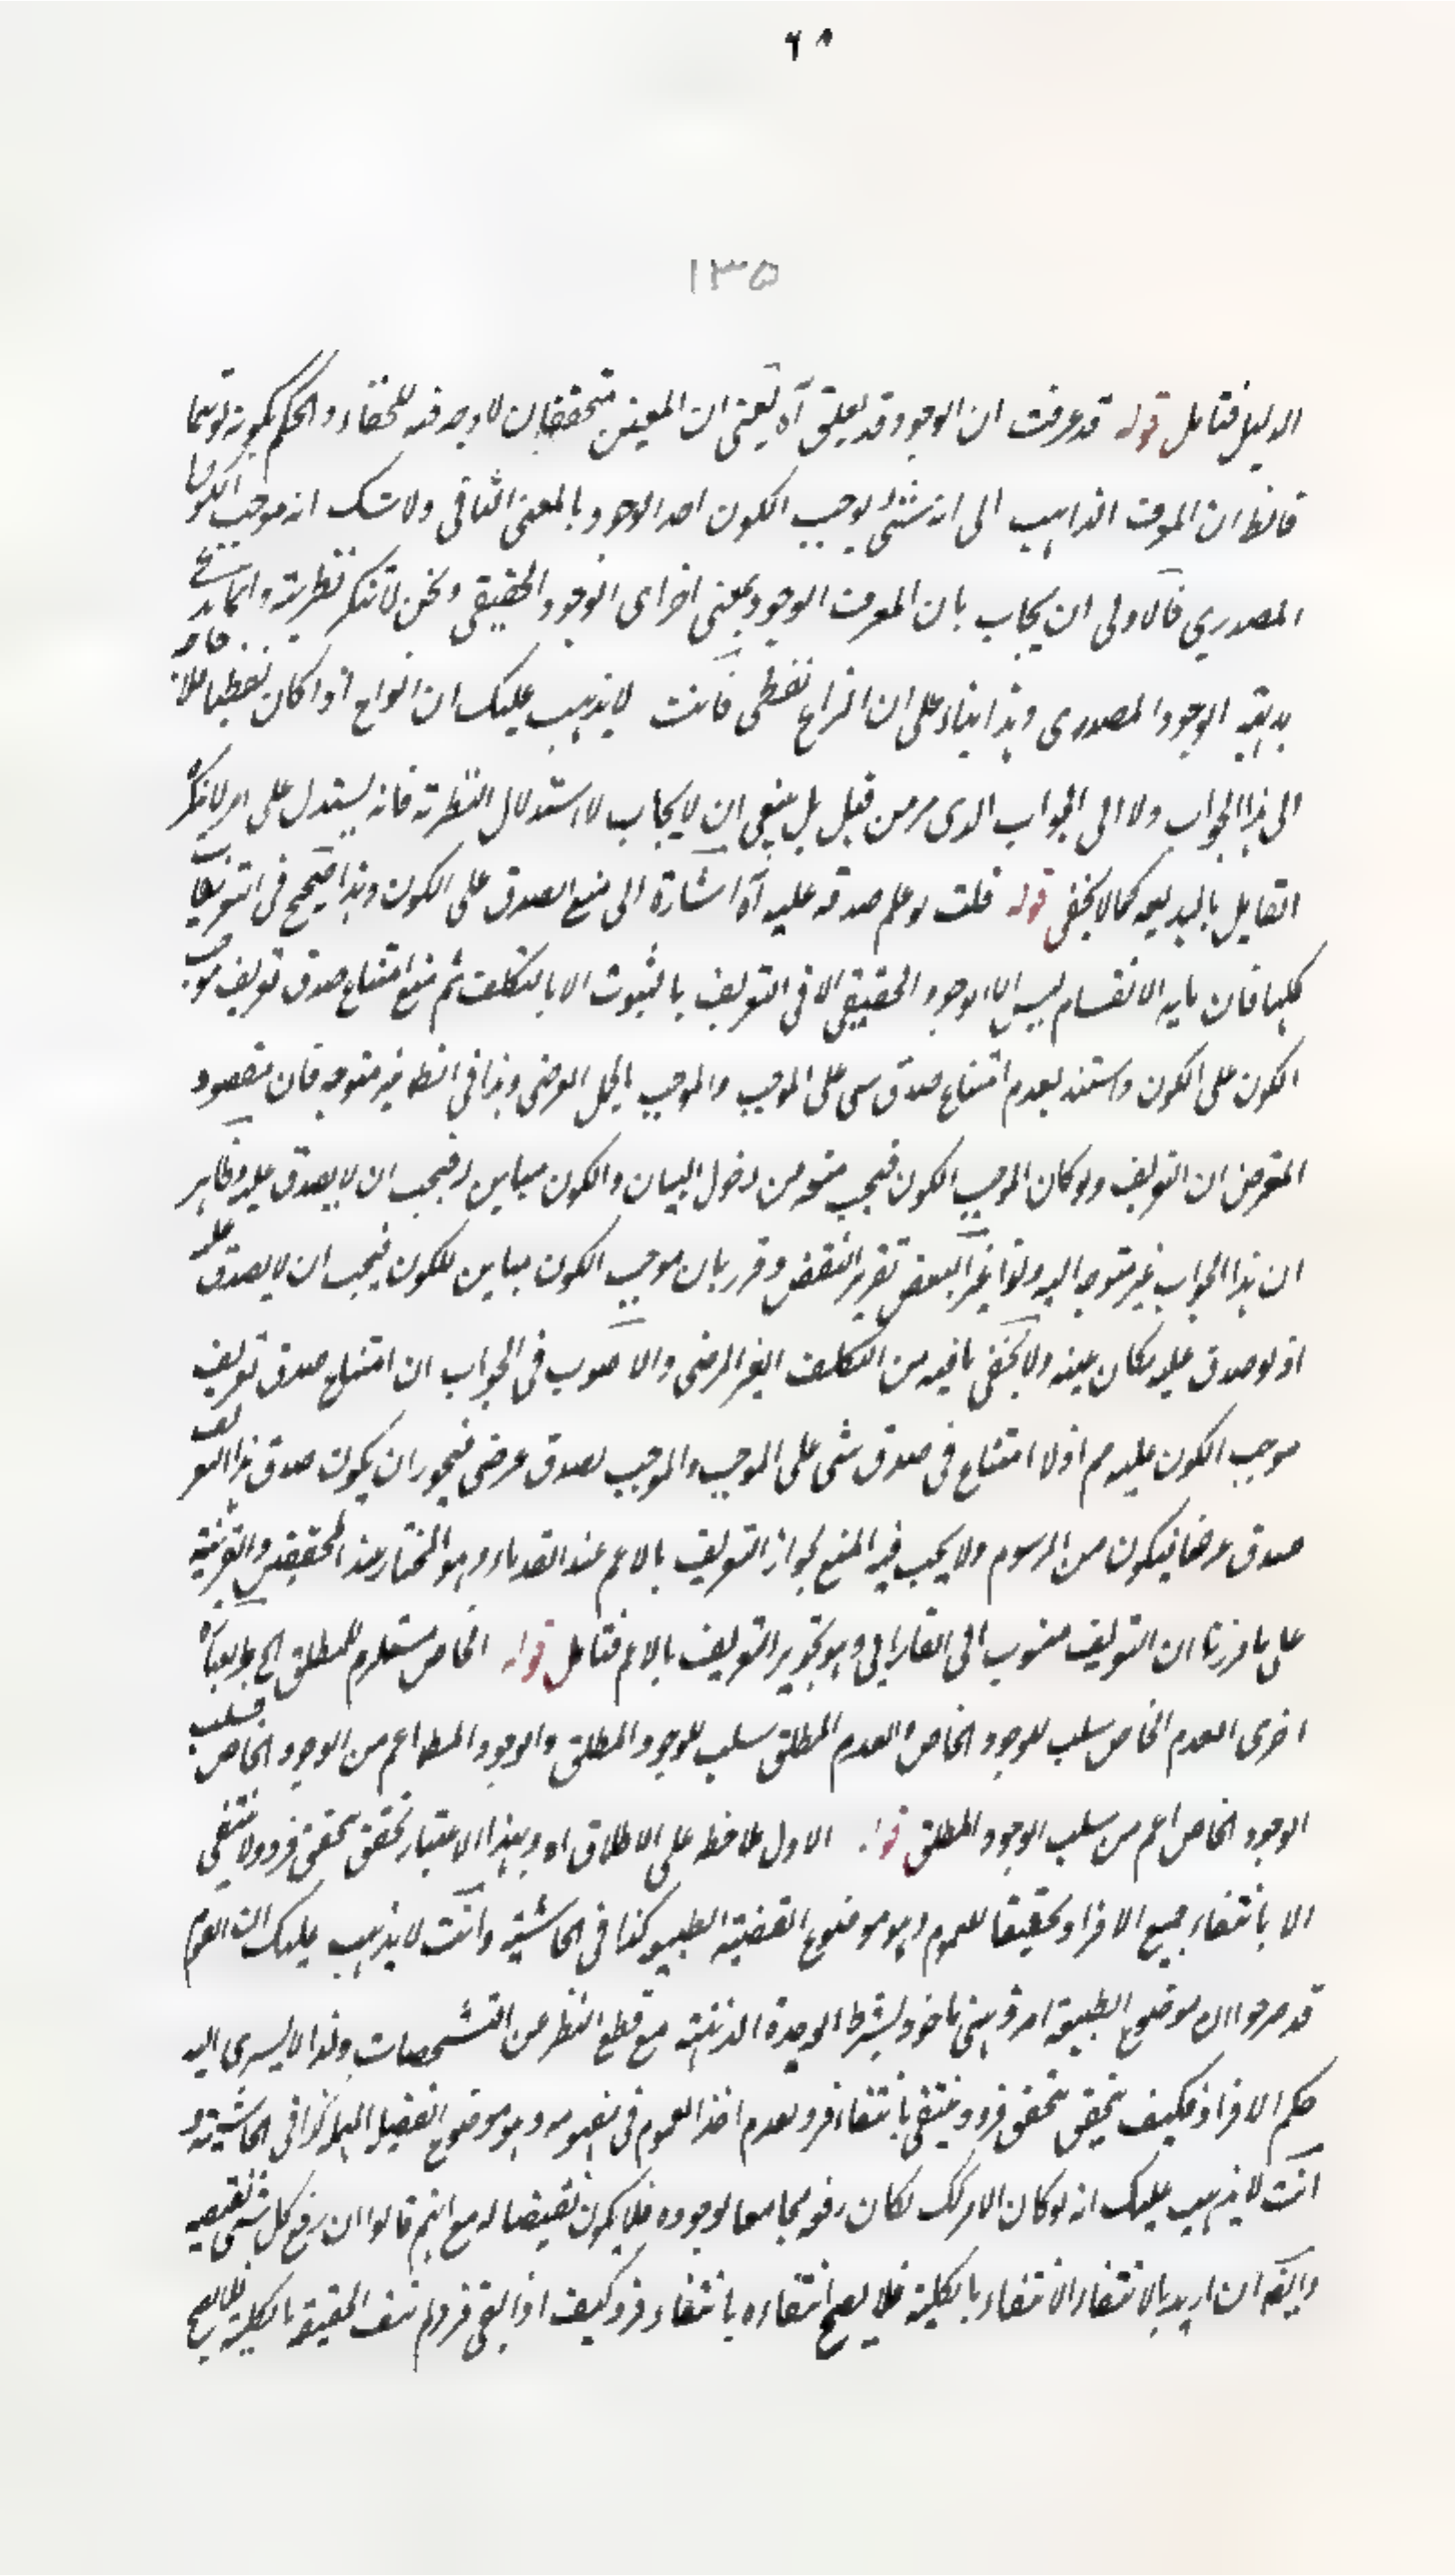 ٦٨
١٣٥
الدليل فتامل قوله قد عرفت ان الوجود قد يطلق آه يعنى ان المعنيين متحققان لا وجه فيه للخفاء والحكم بكونه توهما
فالظ ان المعرف الذاهب الى انه شئ يوجب الكون اخذ الوجود بالمعنى الثانى ولا شك انه موجب الكون
المصدري فالاولى ان يجاب بان المعرف الوجود بمعنى اخر اى الوجود الحقيقى ونحن لا ننكر نظريته وانما ندعى
بديهية الوجود المصدرى وهذا بناء على ان النزاع لفظى فانت لا يذهب عليك ان النزاع اذا كان لفظيا فلا حاجة
الى هذا الجواب ولا الى الجواب الذى مر من قبل بل ينبغى ان لا يجاب لاستدلال النظرية فانه يستدل على امر لا ينكره
القايل بالبديهية كما لا يخفى قوله قلت لو علم صدقه عليه آه اشارة الى منع الصدق على الكون وهذا صحيح فى التعريفات
كلها فان ما به الانقسام ليس الا الوجود الحقيقى الا فى التعريف بالثبوت الا بالتكلف ثم منع امتناع صدق تعريف موجب
الكون على الكون واستند بعدم امتناع صدق شى على الموجب والموجب بالحمل العرضى وهذا فى الظ غير متوجه فان مقصود
المعترض ان التعريف ولو كان الموجب الكون فيجب منعه من دخول المباين والكون مباين له فيجب ان لا يصدق عليه وظاهر
ان هذا الجواب غير متوجه اليه ولذا غير البعض تقرير النقض وقرر بان موجب الكون مباين للكون فيجب ان لا يصدق عليه
اذ لو صدق عليه لكان عينه ولا يخفى ما فيه من التكلف الغير المرضى والاصوب فى الجواب ان امتناع صدق تعريف
موجب الكون عليه مم اذ لا امتناع فى صدق شى على الموجب والموجب بصدق عرضى فيجوز ان يكون صدق هذا التعريف
صدق عرضا فيكون من الرسوم ولا يجب فيه المنع لجواز التعريف بالاعم عند القدماء وهو المختار عند المحققين والقرينة
على ما قررنا ان التعريف منسوب الى الفارابى وهو تجويز التعريف بالاعم فتامل قوله الخاص مستلزم للمطلق الخ وبعبارة
اخرى العدم الخاص سلب للوجود الخاص والعدم المطلق سلب للوجود المطلق والوجود المط اعم من الوجود الخاص فسلب
الوجود الخاص اعم من سلب الوجود المطلق قوله الاول ملاحظة على الاطلاق اه وبهذا الاعتبار تحقق بتحقق فرد ولا ينتفى
الا بانتفاء جميع الافراد تحقيقا للعموم وهو موضوع القضية الطبيعية كذا فى الحاشية وانت لا يذهب عليك ان القوم
قد صرحوا ان موضوع الطبيعية امر ذهنى ماخوذ بشرط الوحدة الذهنية مع قطع النظر عن التشخصات ولذا لا يسرى اليه
حكم الافراد فكيف يتحقق بتحقق فرد وينتفى بانتفاء فرد لعدم اخذ العموم فى مفهومه وهو موضوع القضية المهملة كذا فى الحاشية
انت لا يذهب عليك انه لو كان الامر كك لكان رفعه مجامعا لوجوده فلا يكون نقيضا له مع انهم قالوا ان رفع كل شئ نقيضه
وايضا ان اريد بالانتفاء الانتفاء بالكلية فلا يصح انتفاءه بانتفاء فرد كيف اذا بقى فرد لم تنتف الحقيقة بالكلية فلا يصح